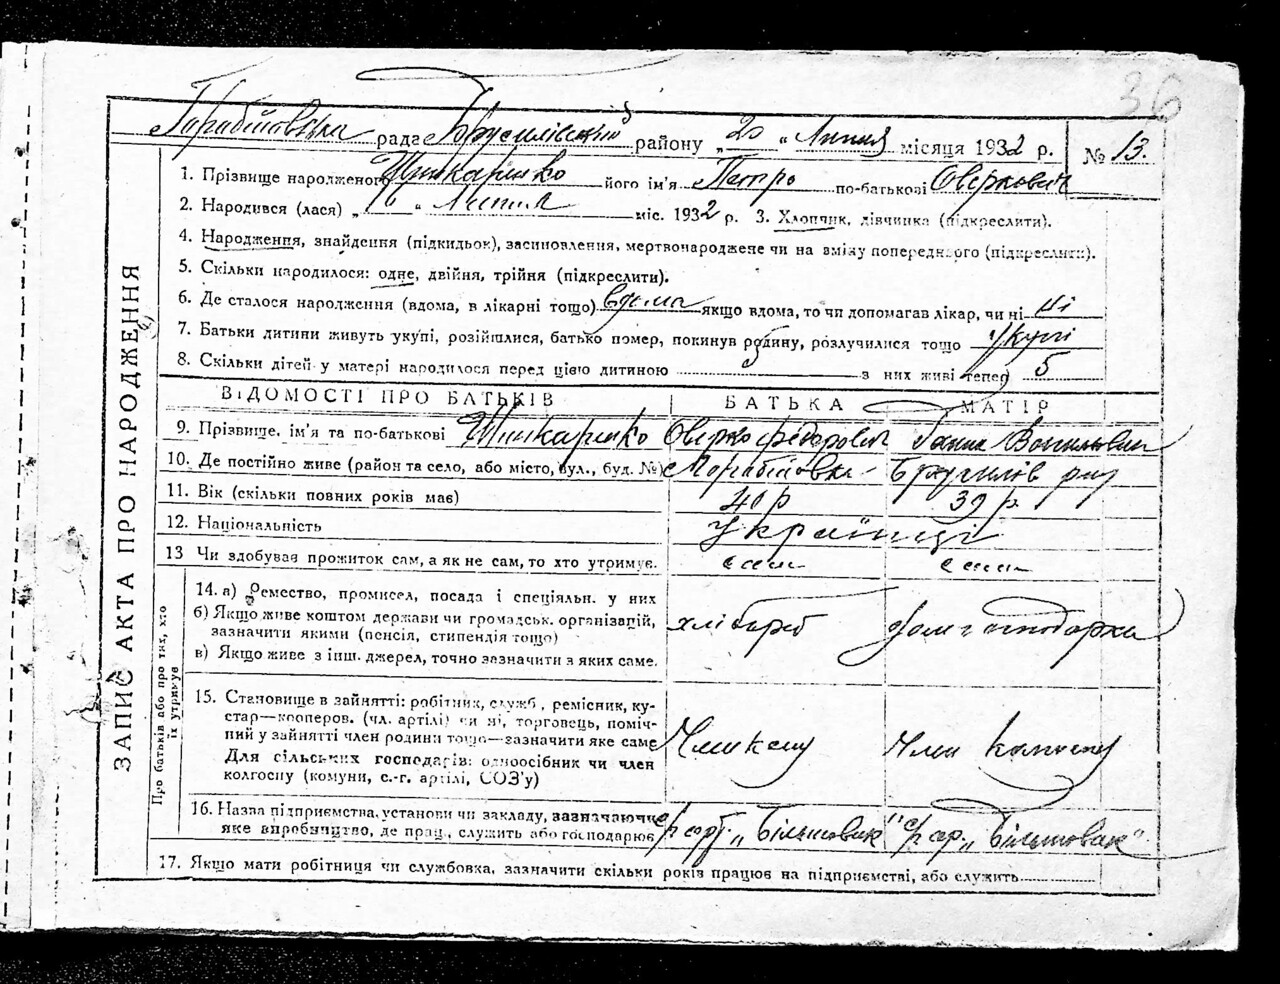 36
рада Брусилівский району „ 20 “ Липня місяця 1932 р. № 13.
ЗАПИС АКТА ПРО НАРОДЖЕННЯ
1. Прізвище народженого Шинкаренко його ім'я Петро по-батькові Оверкович
2. Народився (лася) „ “ Липня міс. 1932 р. 3. Хлопчик, дівчинка (підкреслити).
4. Народження, знайдення (підкидьок), засиновлення, мертвонароджене чи на зміну попереднього (підкреслити).
5. Скільки народилося: одне, двійня, трійня (підкреслити).
6. Де сталося народження (вдома, в лікарні тощо) вдома якщо вдома, то чи допомагав лікар, чи ні ні
7. Батьки дитини живуть укупі, розійшлися, батько помер, покинув родину, розлучилися тощо укупі
8. Скільки дітей у матері народилося перед цією дитиною з них живі тепер 5
ВІДОМОСТІ ПРО БАТЬКІВ БАТЬКА МАТІР
9. Прізвище, ім'я та по-батькові Шинкаренко Оверко Федорович Ганна
10. Де постійно живе (район та село, або місто, вул., буд. №) Брусилів рну
11. Вік (скільки повних років має) 40 р 39 р.
12. Національність Українці
13 Чи здобував прожиток сам, а як не сам, то хто утримує. сам сама
Про батьків або про тих, хто їх утримує
14. а) Ремество, промисел, посада і спеціяльн. у них
б) Якщо живе коштом держави чи громадськ. організацій, хлібороб домгосподарка
зазначити якими (пенсія, стипендія тощо)
в) Якщо живе з інш. джерел, точно зазначити з яких саме.
15. Становище в зайнятті: робітник, служб., ремісник, ку-
стар—кооперов. (чл. артілі) чи ні, торговець, поміч-
ний у зайнятті член родини тощо—зазначити яке саме Член
Для сільських господарів: одноосібник чи член
колгоспу (комуни, с.-г. артілі, СОЗ'у)
16. Назва підприємства, установи чи закладу, зазначаючи
яке виробництво, де прац., служить або господарює „Більшовик“ „Більшовик“
17. Якщо мати робітниця чи службовка, зазначити скільки років працює на підприємстві, або служить